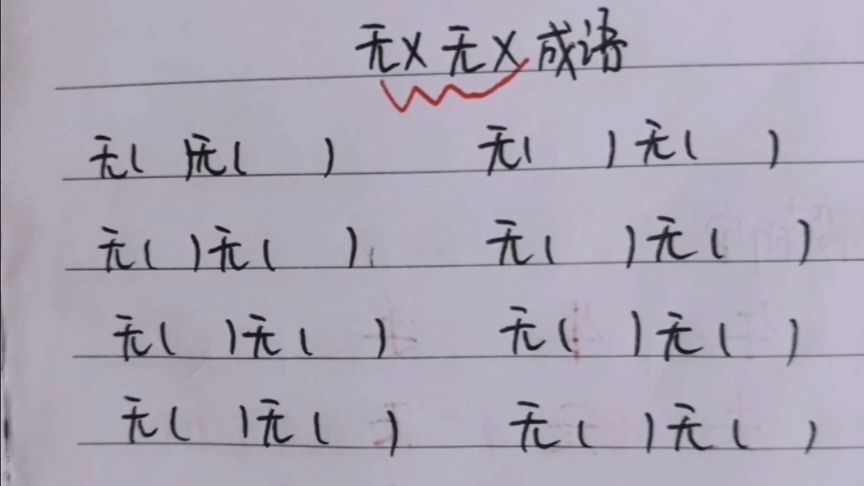 无X无X成语
无( )无( ) 无( )无( )
无( )无( ) 无( )无( )
无( )无( ) 无( )无( )
无( )无( ) 无( )无( )